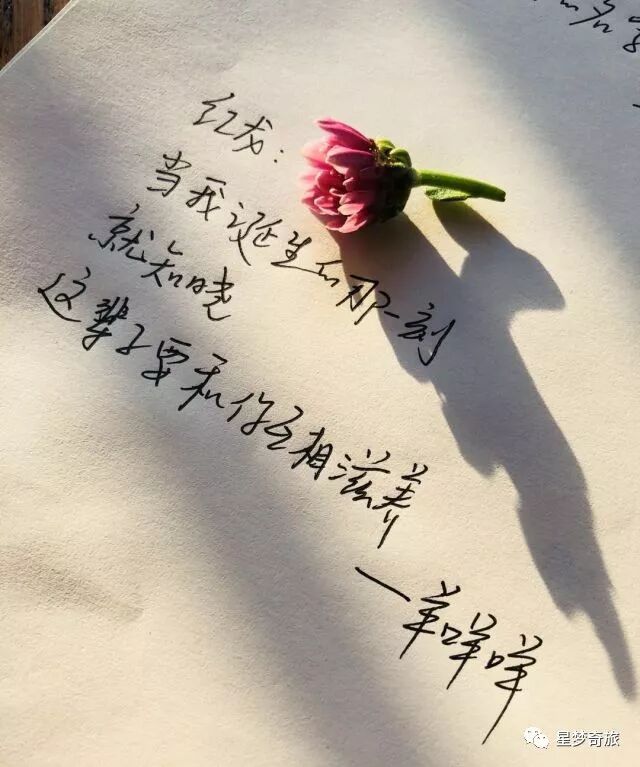 红龙：
当我诞生的那一刻
就知晓
这辈子要和你互相滋养
一羊咩咩
星梦奇旅